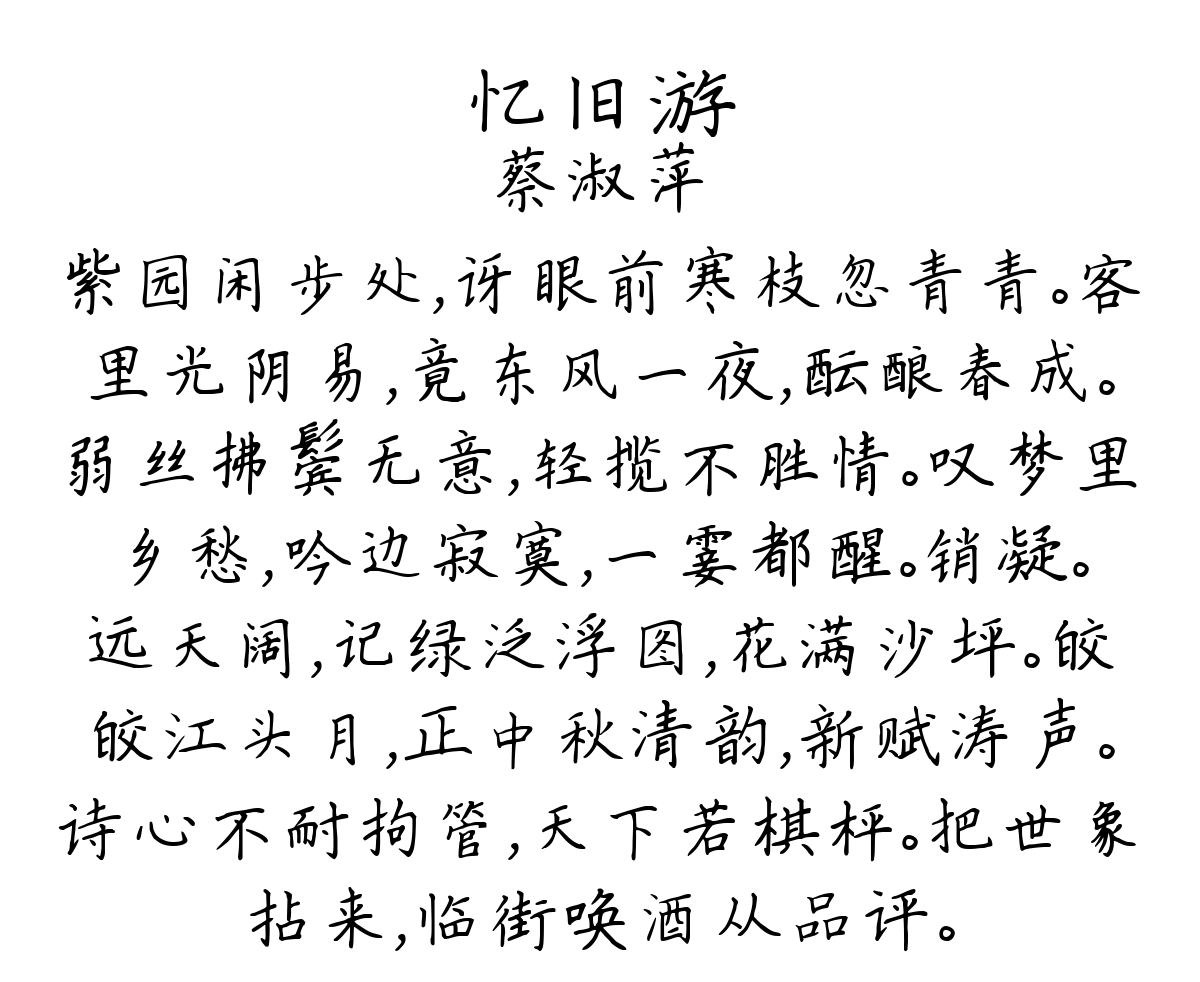 忆旧游
蔡淑萍
紫园闲步处,讶眼前寒枝忽青青。客
里光阴易,竟东风一夜,酝酿春成。
弱丝拂鬓无意,轻揽不胜情。叹梦里
乡愁,吟边寂寞,一霎都醒。销凝。
远天阔,记绿泛浮图,花满沙坪。皎
皎江头月,正中秋清韵,新赋涛声。
诗心不耐拘管,天下若棋枰。把世象
拈来,临街唤酒从品评。